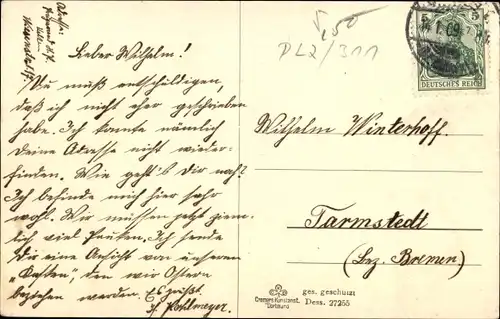 Lieber Wilhelm!
Du mußt entschuldigen,
daß ich nicht eher geschrieben
habe. Ich konnte nämlich
Deine Adresse nicht wieder-
finden. Wie geht's Dir noch?
Ich befinde mich hier sehr
wohl. Wir müssen jetzt ziem-
lich viel Pauken. Ich sende
Dir eine Ansicht von unserem
"Kasten", den wir Ostern
beziehen werden. Es grüßt
H. Pohlmeyer.
Adresse:
PL2/311
5
5
DEUTSCHES REICH
Wilhelm Winterhoff.
Tarmstedt
(Bez. Bremen)
Cramers Kunstanst.
Dortmund
ges. geschützt
Dess. 27258